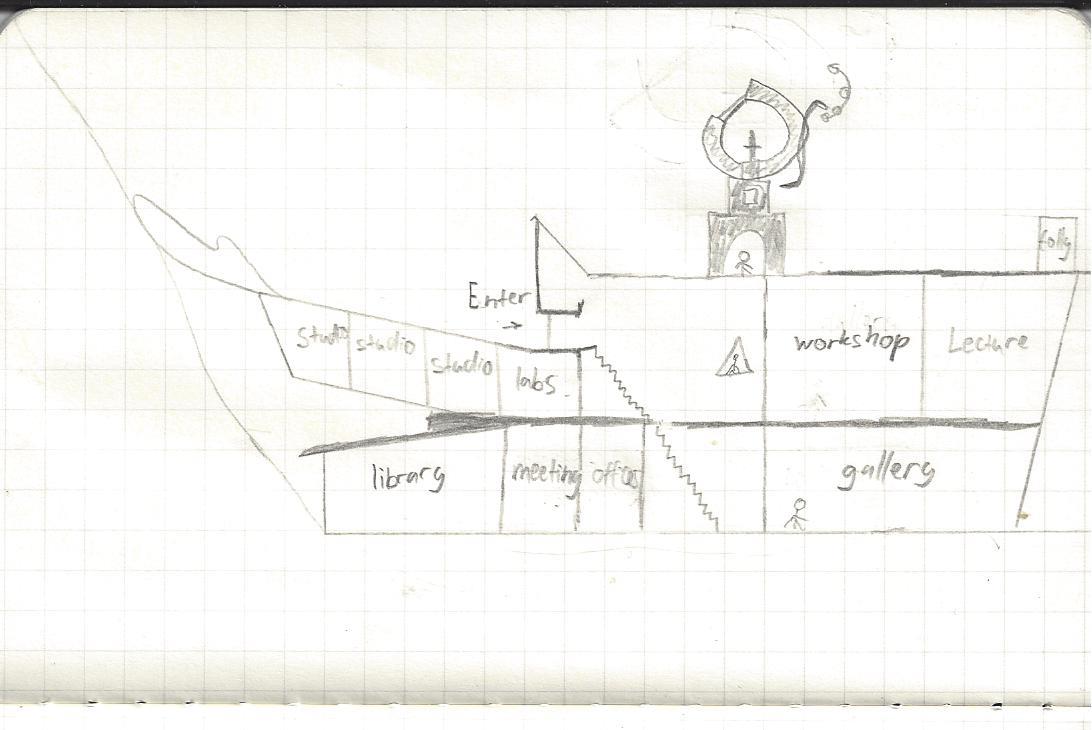 folly
Enter
studio
studio
studio
labs
workshop
Lecture
library
meeting
offices
gallery